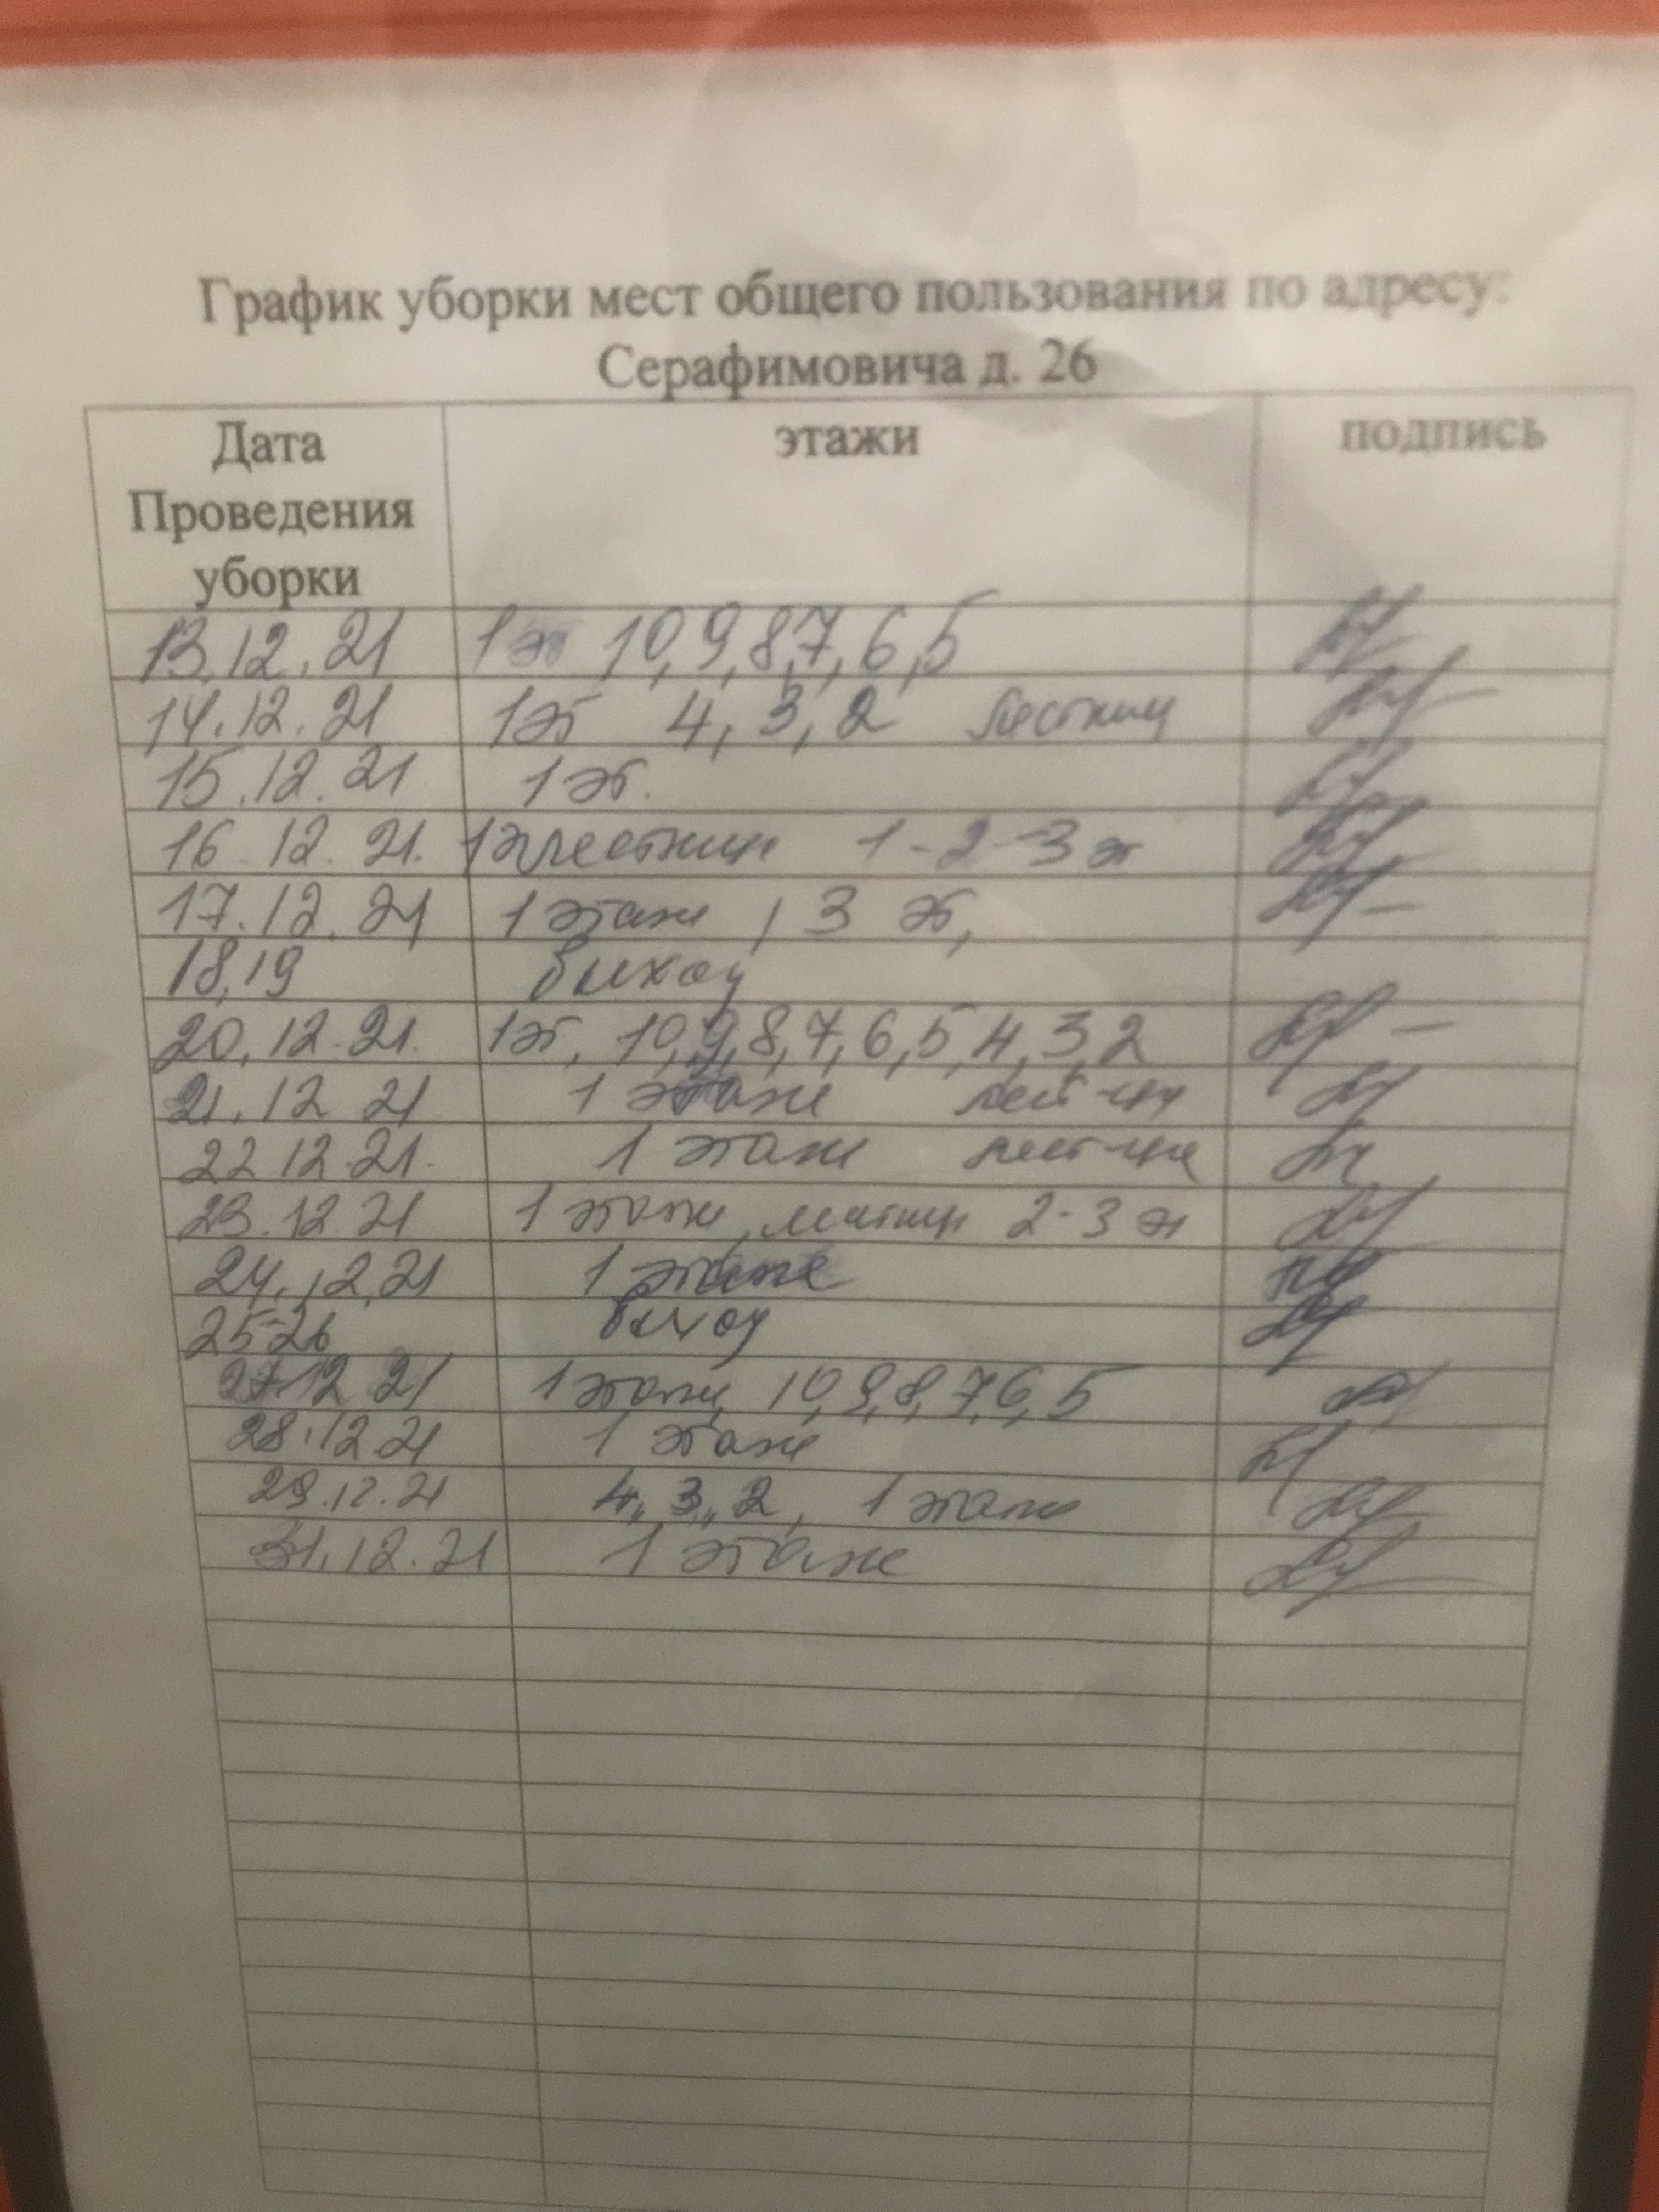 График уборки мест общего пользования по адресу:
Серафимовича д. 26
Дата Проведения уборки этажи подпись
13.12.21 1эт 10,9,8,7,6,5
14.12.21 1эт 4,3,2 лестниц
15.12.21 1эт.
16.12.21. 1эт лестниц 1-2-3 эт
17.12.21 1 этаж, 3 эт,
18,19 выход
20.12.21. 1эт, 10,9,8,7,6,5,4,3,2
21.12 21 1 этаж лест-цы
22 12.21. 1 этаж лест-це
23.12.21 1 этаж, лестниц 2-3 эт
24.12.21 1 этаж
25-26 выход
27 12 21 1 этаж, 10,9,8,7,6,5
28.12 21 1 этаж
29.12.21 4,3,2, 1 этаж
31.12.21 1 этаж